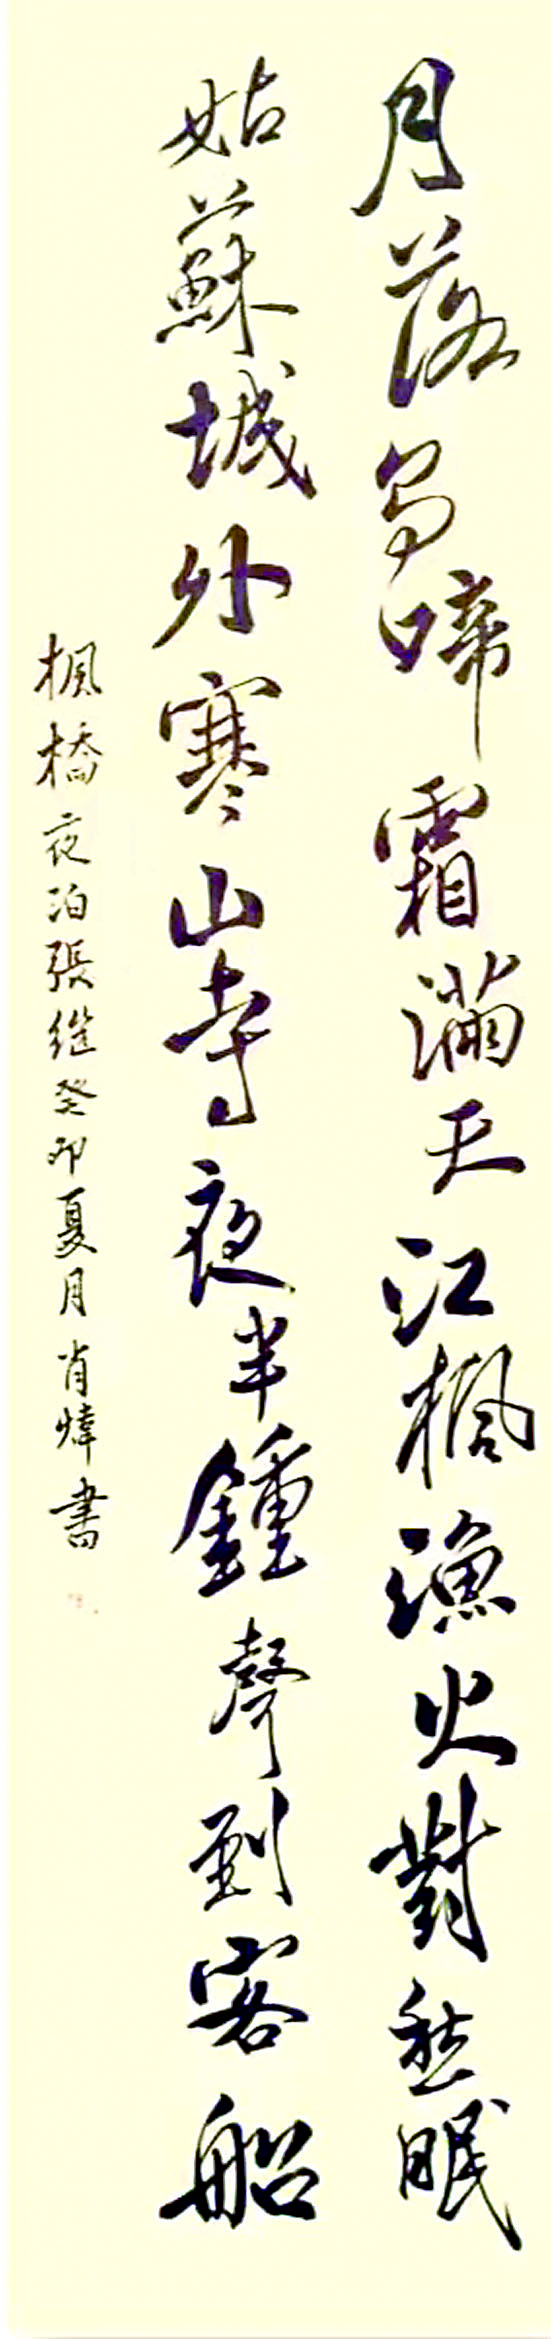 月落烏啼霜滿天江楓漁火對愁眠
姑蘇城外寒山寺夜半鍾聲到客船
楓橋夜泊張继癸卯夏月肖煒書